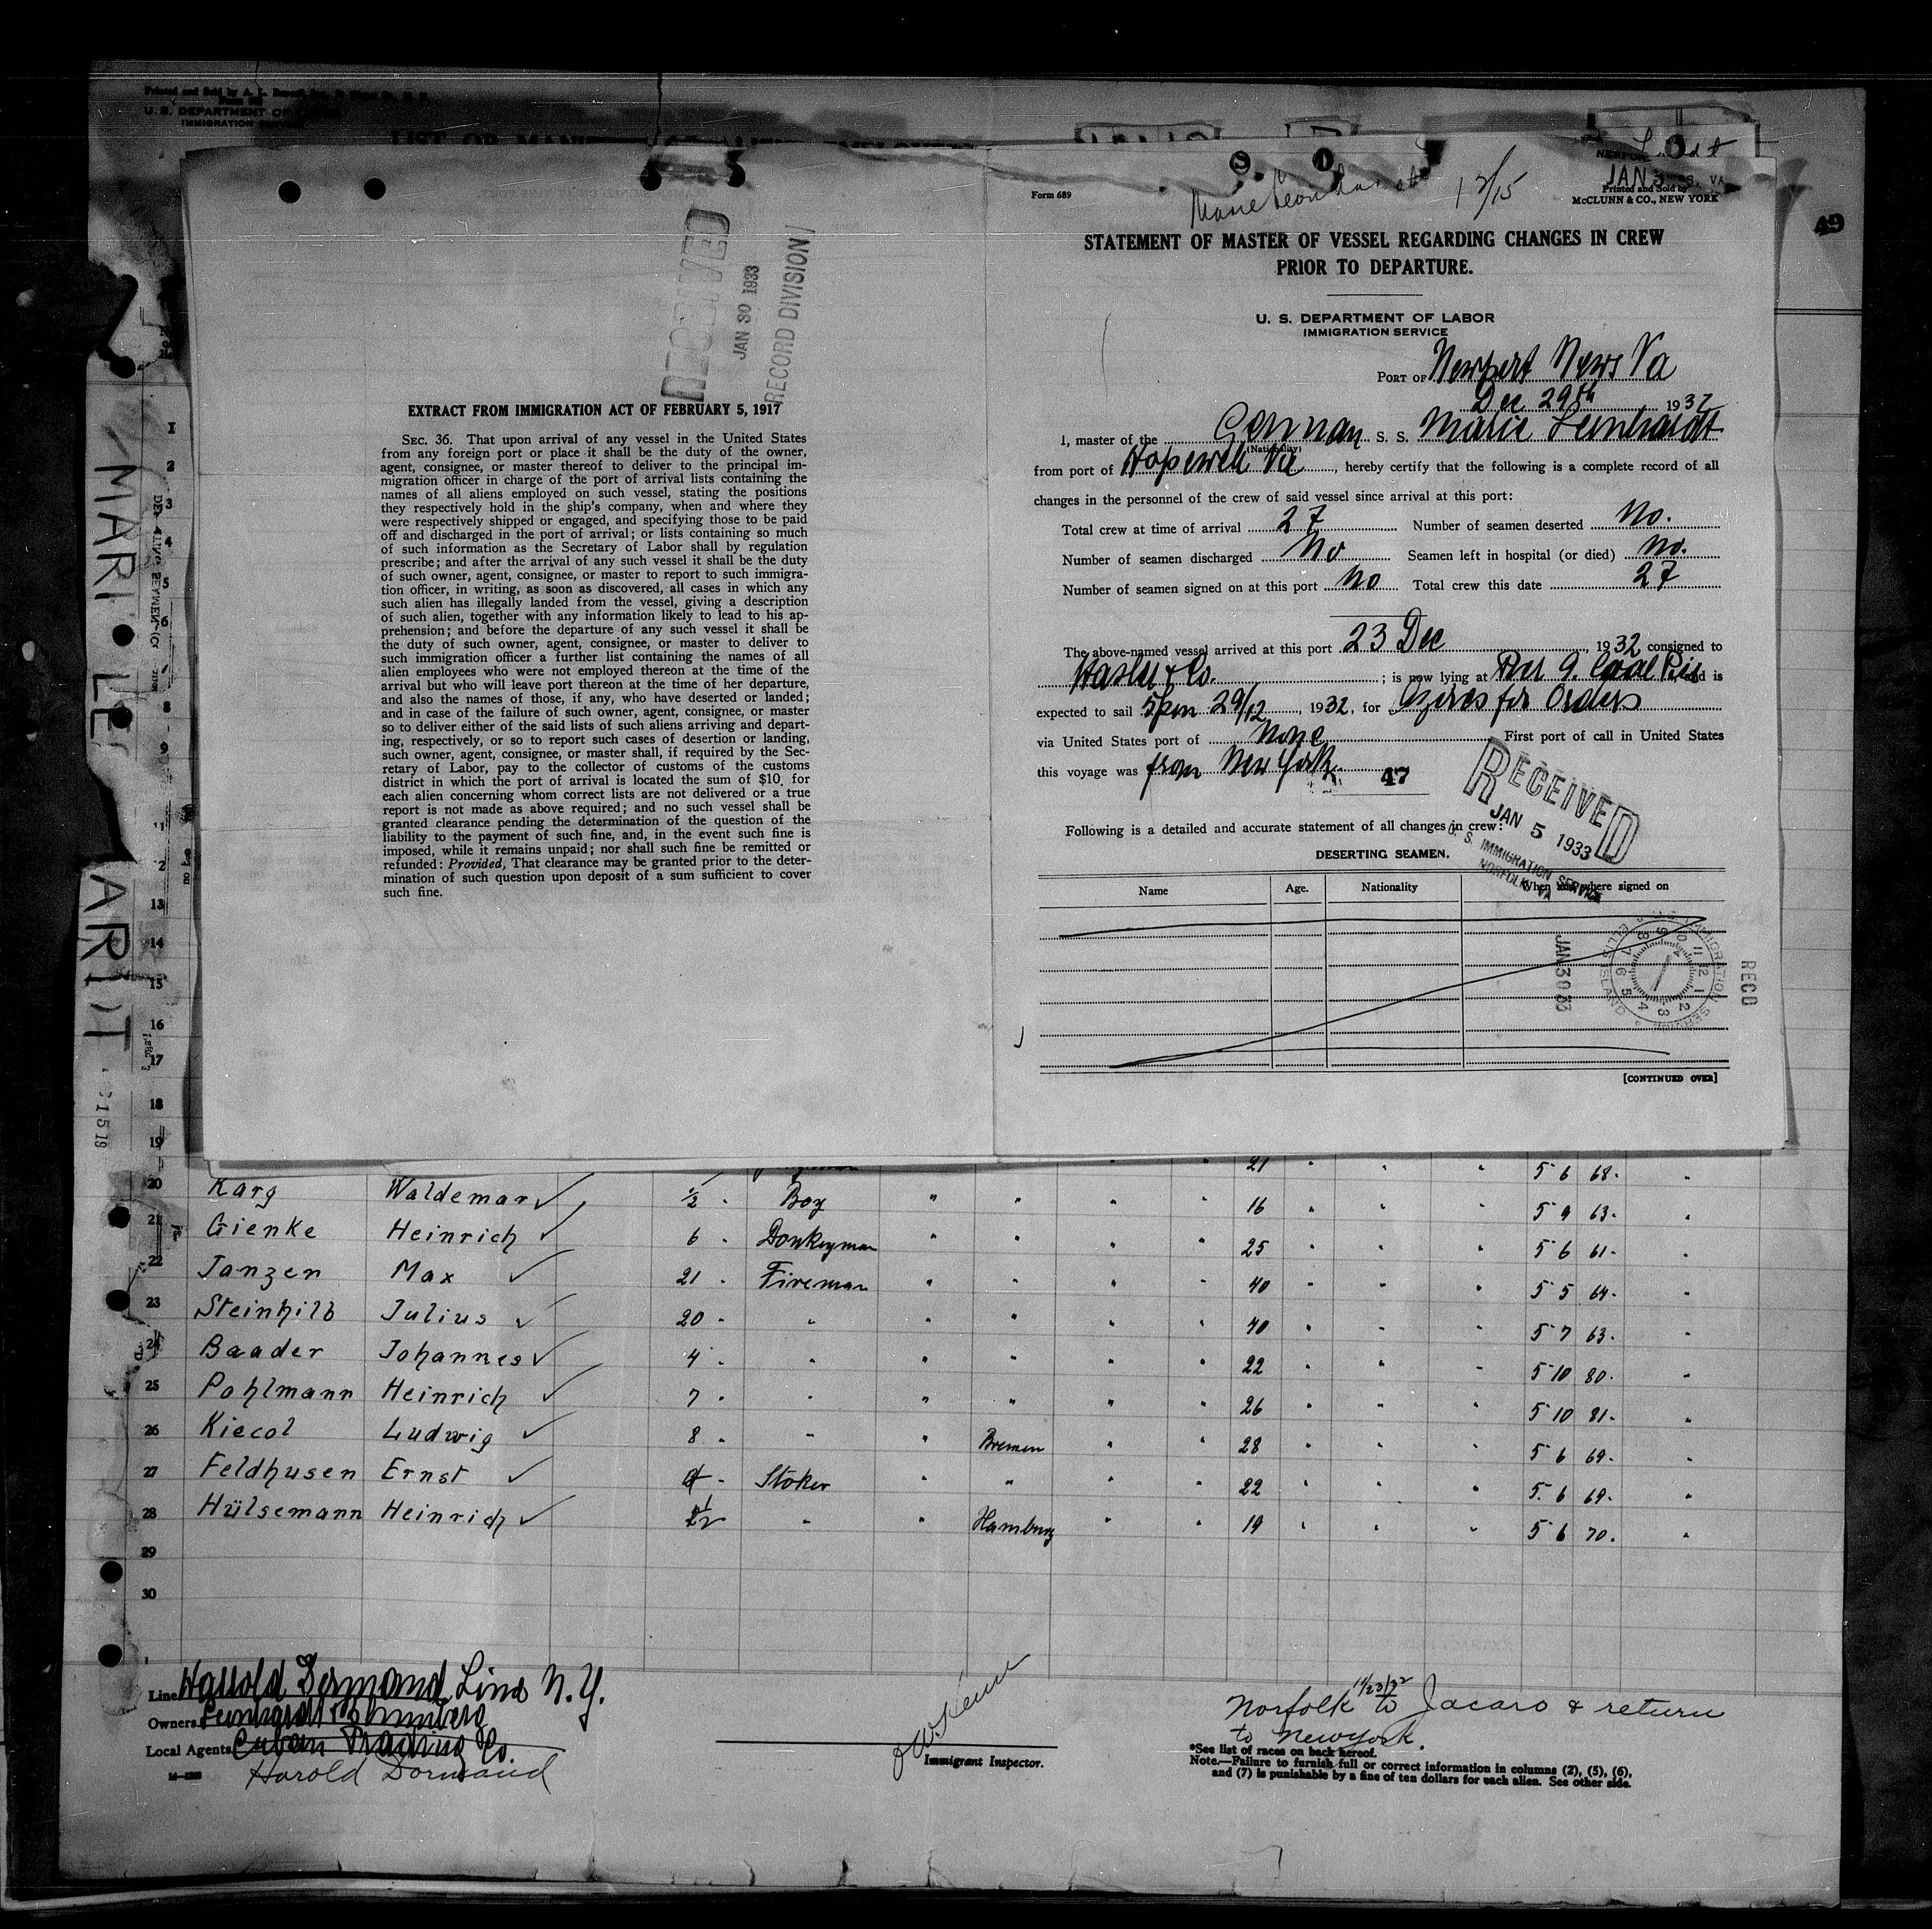 Printed and Sold by
U. S. DEPARTMENT OF
IMMIGRATION SERVICE
49
MARI
LE
ARDT
RECEIVED
JAN 30 1933
RECORD DIVISION
EXTRACT FROM IMMIGRATION ACT OF FEBRUARY 5, 1917
SEC. 36. That upon arrival of any vessel in the United States
from any foreign port or place it shall be the duty of the owner,
agent, consignee, or master thereof to deliver to the principal im-
migration officer in charge of the port of arrival lists containing the
names of all aliens employed on such vessel, stating the positions
they respectively hold in the ship's company, when and where they
were respectively shipped or engaged, and specifying those to be paid
off and discharged in the port of arrival; or lists containing so much
of such information as the Secretary of Labor shall by regulation
prescribe; and after the arrival of any such vessel it shall be the duty
of such owner, agent, consignee, or master to report to such immigra-
tion officer, in writing, as soon as discovered, all cases in which any
such alien has illegally landed from the vessel, giving a description
of such alien, together with any information likely to lead to his ap-
prehension; and before the departure of any such vessel it shall be
the duty of such owner, agent, consignee, or master to deliver to
such immigration officer a further list containing the names of all
alien employees who were not employed thereon at the time of the
arrival but who will leave port thereon at the time of her departure,
and also the names of those, if any, who have deserted or landed;
and in case of the failure of such owner, agent, consignee, or master
so to deliver either of the said lists of such aliens arriving and depart-
ing, respectively, or so to report such cases of desertion or landing,
such owner, agent, consignee, or master shall, if required by the Sec-
retary of Labor, pay to the collector of customs of the customs
district in which the port of arrival is located the sum of $10 for
each alien concerning whom correct lists are not delivered or a true
report is not made as above required; and no such vessel shall be
granted clearance pending the determination of the question of the
liability to the payment of such fine, and, in the event such fine is
imposed, while it remains unpaid; nor shall such fine be remitted or
refunded: Provided, That clearance may be granted prior to the deter-
mination of such question upon deposit of a sum sufficient to cover
such fine.
Form 689
12/15
JAN 3
Printed and Sold by
McCLUNN & CO., NEW YORK
STATEMENT OF MASTER OF VESSEL REGARDING CHANGES IN CREW
PRIOR TO DEPARTURE.
U. S. DEPARTMENT OF LABOR
IMMIGRATION SERVICE
PORT OF Newport News Va
Dec 29th 1932
I, master of the German S. S. Marie Leinhardt
(Nationality)
from port of Hopewell Va, hereby certify that the following is a complete record of all
changes in the personnel of the crew of said vessel since arrival at this port:
Total crew at time of arrival 27 Number of seamen deserted No.
Number of seamen discharged No Seamen left in hospital (or died) No.
Number of seamen signed on at this port No Total crew this date 27
The above-named vessel arrived at this port 23 Dec, 1932 consigned to
Hasler & Co.; is now lying at Pier 9. Coal Pier and is
expected to sail 5pm 29/12, 1932, for Azores for Orders
via United States port of None First port of call in United States
this voyage was from New York 47
RECEIVED
JAN 5 1933
U. S. IMMIGRATION SERVICE
NORFOLK, VA
Following is a detailed and accurate statement of all changes in crew:
DESERTING SEAMEN.
Name Age. Nationality When and where signed on
JAN 30 33
IMMIGRATION SERVICE
ELLIS ISLAND
RECD
[CONTINUED OVER]
21 " " " 5 6 68. "
20 Karg Waldemar ✓ 1/2 " Boy " " " " 16 " " " 5 9 63. "
21 Gienke Heinrich ✓ 6 " Donkeyman " " " " 25 " " " 5 6 61. "
22 Janzen Max ✓ 21 " Fireman " " " " 40 " " " 5 5 64. "
23 Steinhilb Julius ✓ 20 " " " " " " 40 " " " 5 7 63. "
24 Baader Johannes ✓ 4 " " " " " " 22 " " " 5 10 80. "
25 Pohlmann Heinrich ✓ 7 " " " " " " 26 " " " 5 10 81. "
26 Kiecol Ludwig ✓ 8 " " " Bremen " " 28 " " " 5 6 69. "
27 Feldhusen Ernst ✓ " Stoker " " " " 22 " " " 5 6 69. "
28 Hülsemann Heinrich ✓ " " Hamburg " " 19 " " " 5 6 70. "
29
30
Line Harold Dermand Line N.Y.
Owners
Local Agents Cuban Trading Co.
Harold Dormand
Immigrant Inspector.
11/23/32
Norfolk to Jacaro & return
to New York.
*See list of races on back hereof.
Note.—Failure to furnish full or correct information in columns (2), (5), (6),
and (7) is punishable by a fine of ten dollars for each alien. See other side.